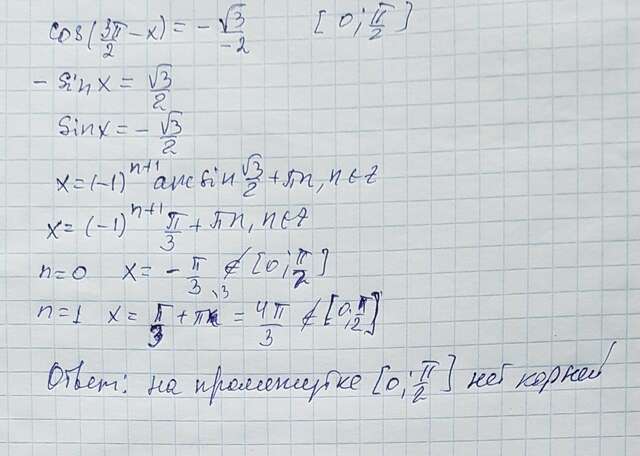 cos(3π/2 - x) = - √3/-2 [0; π/2]
- sin x = √3/2
sin x = - √3/2
x = (-1)^n+1 arcsin √3/2 + πn, n ∈ Z
x = (-1)^n+1 π/3 + πn, n ∈ Z
n = 0 x = - π/3 ∉ [0; π/2]
n = 1 x = π/3 + π = 4π/3 ∉ [0; π/2]
Ответ: на промежутке [0; π/2] нет корней